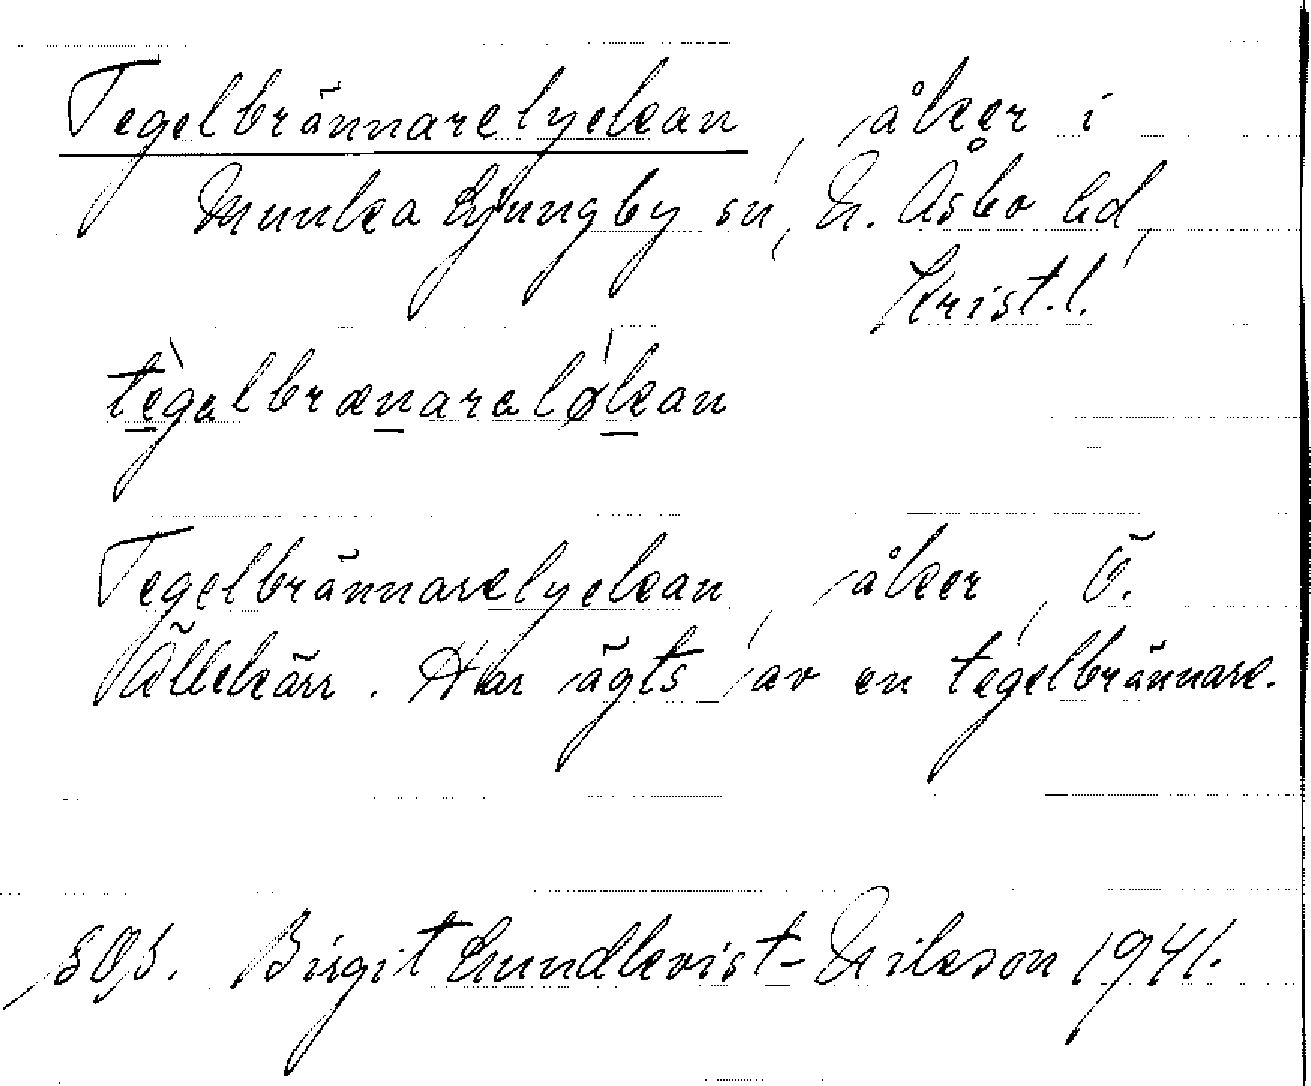 Tegelbrännarelyckan, åker i
Munka Ljungby sn, N. Åsbo hd,
Krist. l.
tègəlbrænarəløkan
Tegelbrännarelyckan, åker, Ö.
Ällekärr. Har ägts av en tegelbrännare.
Birgit Lundkvist-Nilsson 1941.